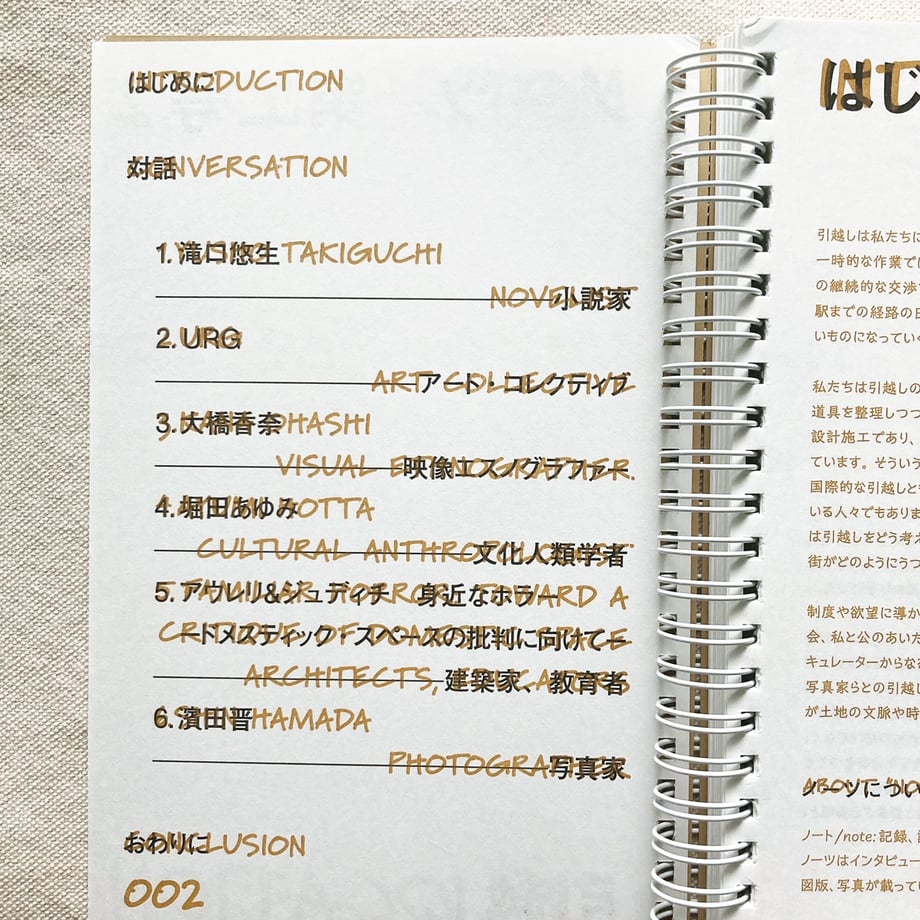 はじめに INTRODUCTION
対話 CONVERSATION
1. 滝口悠生 TAKIGUCHI
NOVELIST 小説家
2. URG
ART COLLECTIVE アート・コレクティブ
3. 大橋香奈 OHASHI
VISUAL ETHNOGRAPHER. 映像エスノグラファー
4. 堀田あゆみ HOTTA
CULTURAL ANTHROPOLOGIST 文化人類学者
5. アウレリ&ジュディチ 身近なホラー FAMILIAR HORROR: TOWARD A
ードメスティック・スペースの批判に向けてー CRITIQUE OF DOMESTIC SPACE
ARCHITECTS, EDUCATORS 建築家、教育者
6. 濱田晋 SHIN HAMADA
PHOTOGRAPHER. 写真家
おわりに CONCLUSION
002
はじ
引越しは私たちに
一時的な作業では
の継続的な交渉
駅までの経路の
いものになっていく
私たちは引越しの
道具を整理しつつ
設計施工であり、
ています。そういう
国際的な引越しと
いる人々でもありま
は引越しをどう考え
街がどのようにうつ
制度や欲望に導か
会、私と公のあいだ
キュレーターからな
写真家らとの引越し
が土地の文脈や時
ABOUT NO
ノーツについ
ノート/note: 記録、
ノーツはインタビュー
図版、写真が載ってい